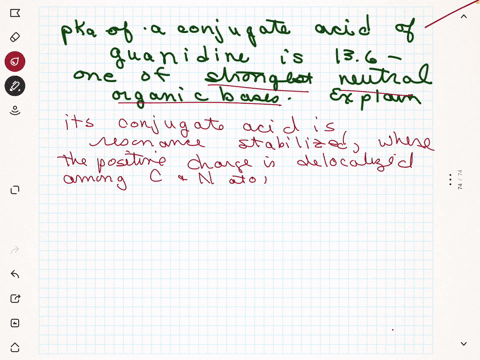 pka of a conjugate acid of
guanidine is 13.6 –
one of strongest neutral
organic bases. Explain
its conjugate acid is
resonance stabilized, where
the positive charge is delocalized
among C & N ato,
74 / 76